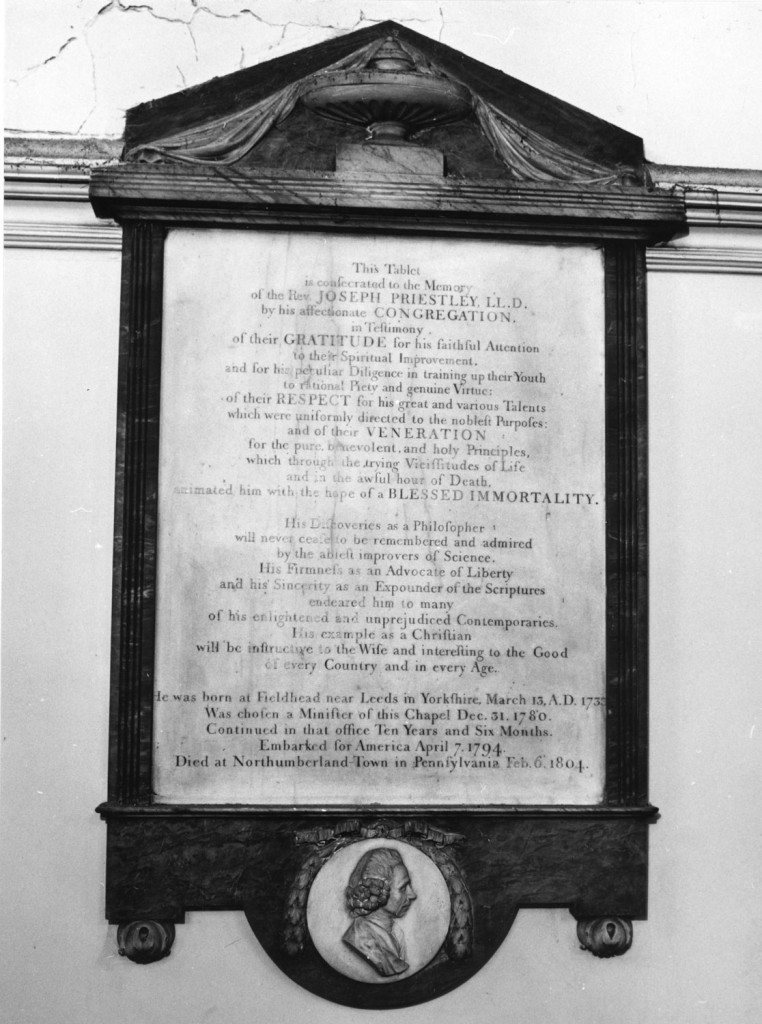 This Tablet
is consecrated to the Memory
of the Rev. JOSEPH PRIESTLEY, LL.D.
by his affectionate CONGREGATION,
in Teſtimony
of their GRATITUDE for his faithful Attention
to their Spiritual Improvement,
and for his peculiar Diligence in training up their Youth
to rational Piety and genuine Virtue:
of their RESPECT for his great and various Talents
which were uniformly directed to the nobleſt Purpoſes:
and of their VENERATION
for the pure, benevolent, and holy Principles,
which through the trying Viciſſitudes of Life
and in the awful hour of Death,
animated him with the hope of a BLESSED IMMORTALITY.
His Diſcoveries as a Philoſopher
will never ceaſe to be remembered and admired
by the ableſt improvers of Science.
His Firmneſs as an Advocate of Liberty
and his Sincerity as an Expounder of the Scriptures
endeared him to many
of his enlightened and unprejudiced Contemporaries.
His example as a Chriſtian
will be inſtructive to the Wiſe and intereſting to the Good
of every Country and in every Age.
He was born at Fieldhead near Leeds in Yorkſhire, March 13, A.D. 1733
Was choſen a Miniſter of this Chapel Dec. 31. 1780.
Continued in that office Ten Years and Six Months.
Embarked for America April 7. 1794.
Died at Northumberland-Town in Pennſylvania Feb. 6. 1804.